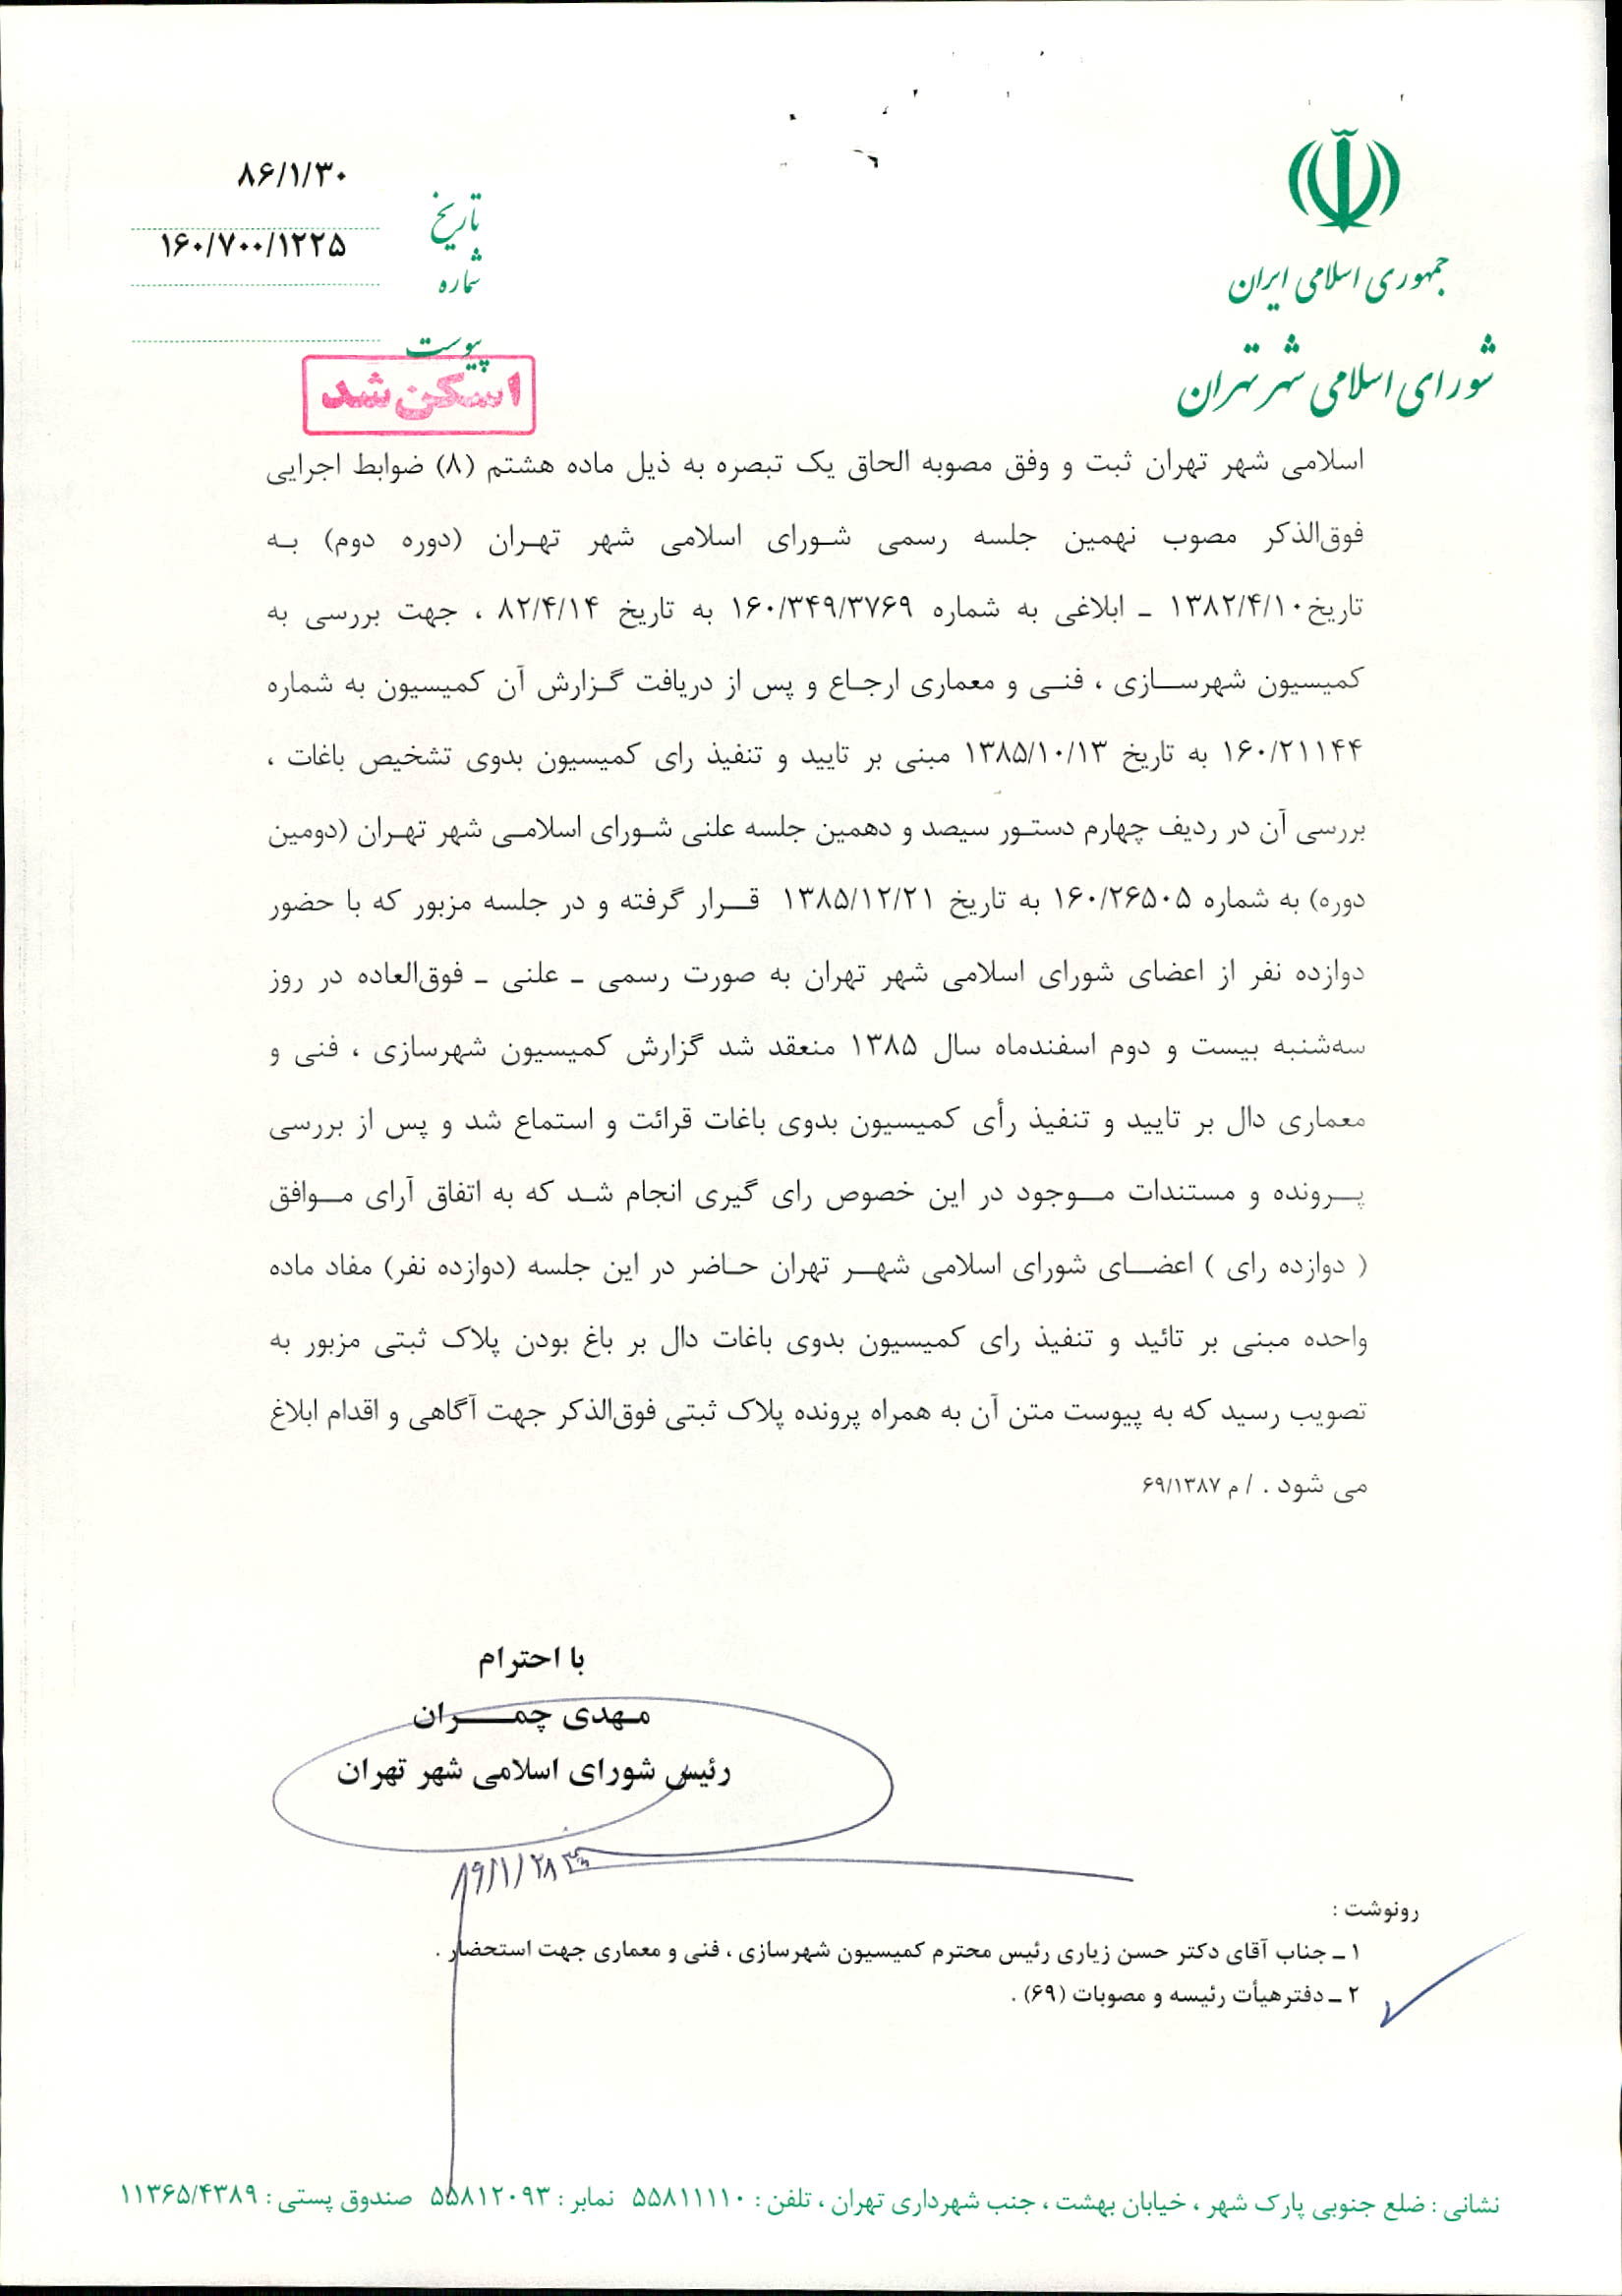 جمهوری اسلامی ایران
شورای اسلامی شهر تهران
تاریخ ۸۶/۱/۳۰
شماره ۱۶۰/۷۰۰/۱۲۲۵
پیوست
اسکن شد
اسلامی شهر تهران ثبت و وفق مصوبه الحاق یک تبصره به ذیل ماده هشتم (۸) ضوابط اجرایی
فوق‌الذکر مصوب نهمین جلسه رسمی شورای اسلامی شهر تهران (دوره دوم) به
تاریخ۱۳۸۲/۴/۱۰ ـ ابلاغی به شماره ۱۶۰/۳۴۹/۳۷۶۹ به تاریخ ۸۲/۴/۱۴ ، جهت بررسی به
کمیسیون شهرسازی ، فنی و معماری ارجاع و پس از دریافت گزارش آن کمیسیون به شماره
۱۶۰/۲۱۱۴۴ به تاریخ ۱۳۸۵/۱۰/۱۳ مبنی بر تایید و تنفیذ رای کمیسیون بدوی تشخیص باغات ،
بررسی آن در ردیف چهارم دستور سیصد و دهمین جلسه علنی شورای اسلامی شهر تهران (دومین
دوره) به شماره ۱۶۰/۲۶۵۰۵ به تاریخ ۱۳۸۵/۱۲/۲۱ قرار گرفته و در جلسه مزبور که با حضور
دوازده نفر از اعضای شورای اسلامی شهر تهران به صورت رسمی ـ علنی ـ فوق‌العاده در روز
سه‌شنبه بیست و دوم اسفندماه سال ۱۳۸۵ منعقد شد گزارش کمیسیون شهرسازی ، فنی و
معماری دال بر تایید و تنفیذ رأی کمیسیون بدوی باغات قرائت و استماع شد و پس از بررسی
پرونده و مستندات موجود در این خصوص رای گیری انجام شد که به اتفاق آرای موافق
( دوازده رای ) اعضای شورای اسلامی شهر تهران حاضر در این جلسه (دوازده نفر) مفاد ماده
واحده مبنی بر تائید و تنفیذ رای کمیسیون بدوی باغات دال بر باغ بودن پلاک ثبتی مزبور به
تصویب رسید که به پیوست متن آن به همراه پرونده پلاک ثبتی فوق‌الذکر جهت آگاهی و اقدام ابلاغ
می شود . / م ۶۹/۱۳۸۷
با احترام
مهدی چمران
رئیس شورای اسلامی شهر تهران
رونوشت :
۱ ـ جناب آقای دکتر حسن زیاری رئیس محترم کمیسیون شهرسازی ، فنی و معماری جهت استحضار .
۲ ـ دفترهیأت رئیسه و مصوبات (۶۹) .
نشانی : ضلع جنوبی پارک شهر ، خیابان بهشت ، جنب شهرداری تهران ، تلفن : ۵۵۸۱۱۱۱۰ نمابر : ۵۵۸۱۲۰۹۳ صندوق پستی : ۱۱۳۶۵/۴۳۸۹